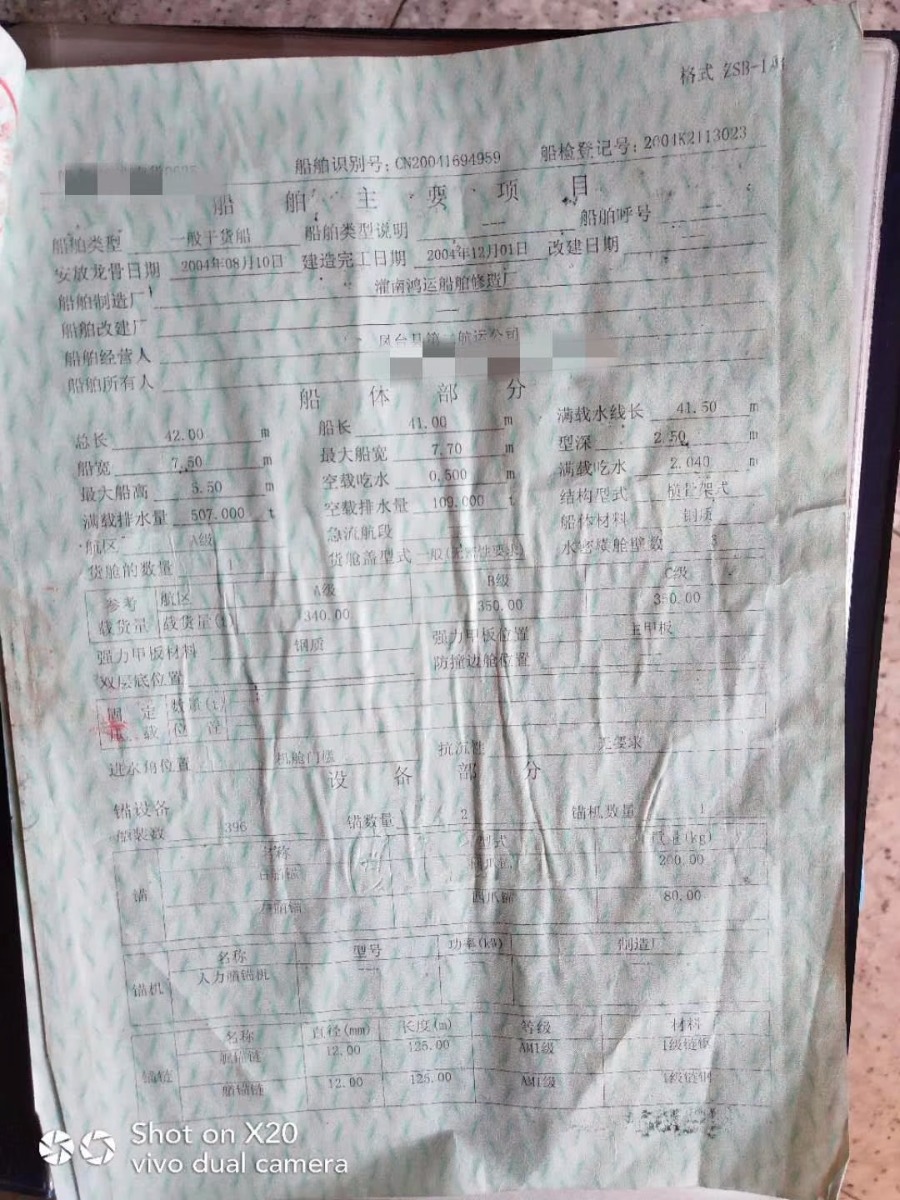 格式 ZSB-1
船舶识别号:CN20041694959 船检登记号:2004K2113023
船 舶 主 要 项 目
船舶类型 一般干货船 船舶类型说明 — 船舶呼号 —
安放龙骨日期 2004年08月10日 建造完工日期 2004年12月01日 改建日期 —
船舶制造厂 灌南鸿运船舶修造厂
船舶改建厂 —
船舶经营人 凤台县第 航运公司
船舶所有人
船 体 部 分
总长 42.00 m 船长 41.00 m 满载水线长 41.50 m
船宽 7.50 m 最大船宽 7.70 m 型深 2.50 m
最大船高 5.50 m 空载吃水 0.500 m 满载吃水 2.040 m
满载排水量 507.000 t 空载排水量 109.000 t 结构型式 横骨架式
航区 A级 急流航段 船体材料 钢质
货舱的数量 1 货舱盖型式 水密横舱壁数 3
参考 航区 A级 B级 C级
载货量 载货量(t) 340.00 350.00 350.00
强力甲板材料 钢质 强力甲板位置 主甲板
双层底位置 防撞边舱位置
固 定 数量(t)
压 载 位 置
进水角位置 机舱门槛 抗沉性 无要求
设 备 部 分
锚设备
舾装数 396 锚数量 2 锚机数量 1
名称 型式 重量(kg)
锚 200.00
四爪锚 80.00
名称 型号 功率(kW) 制造厂
锚机 人力艏锚机 — — —
名称 直径(mm) 长度(m) 等级 材料
艏锚链 12.00 125.00 AM1级 1级链钢
锚链 艏锚链 12.00 125.00 AM1级 1级链钢
Shot on X20
vivo dual camera